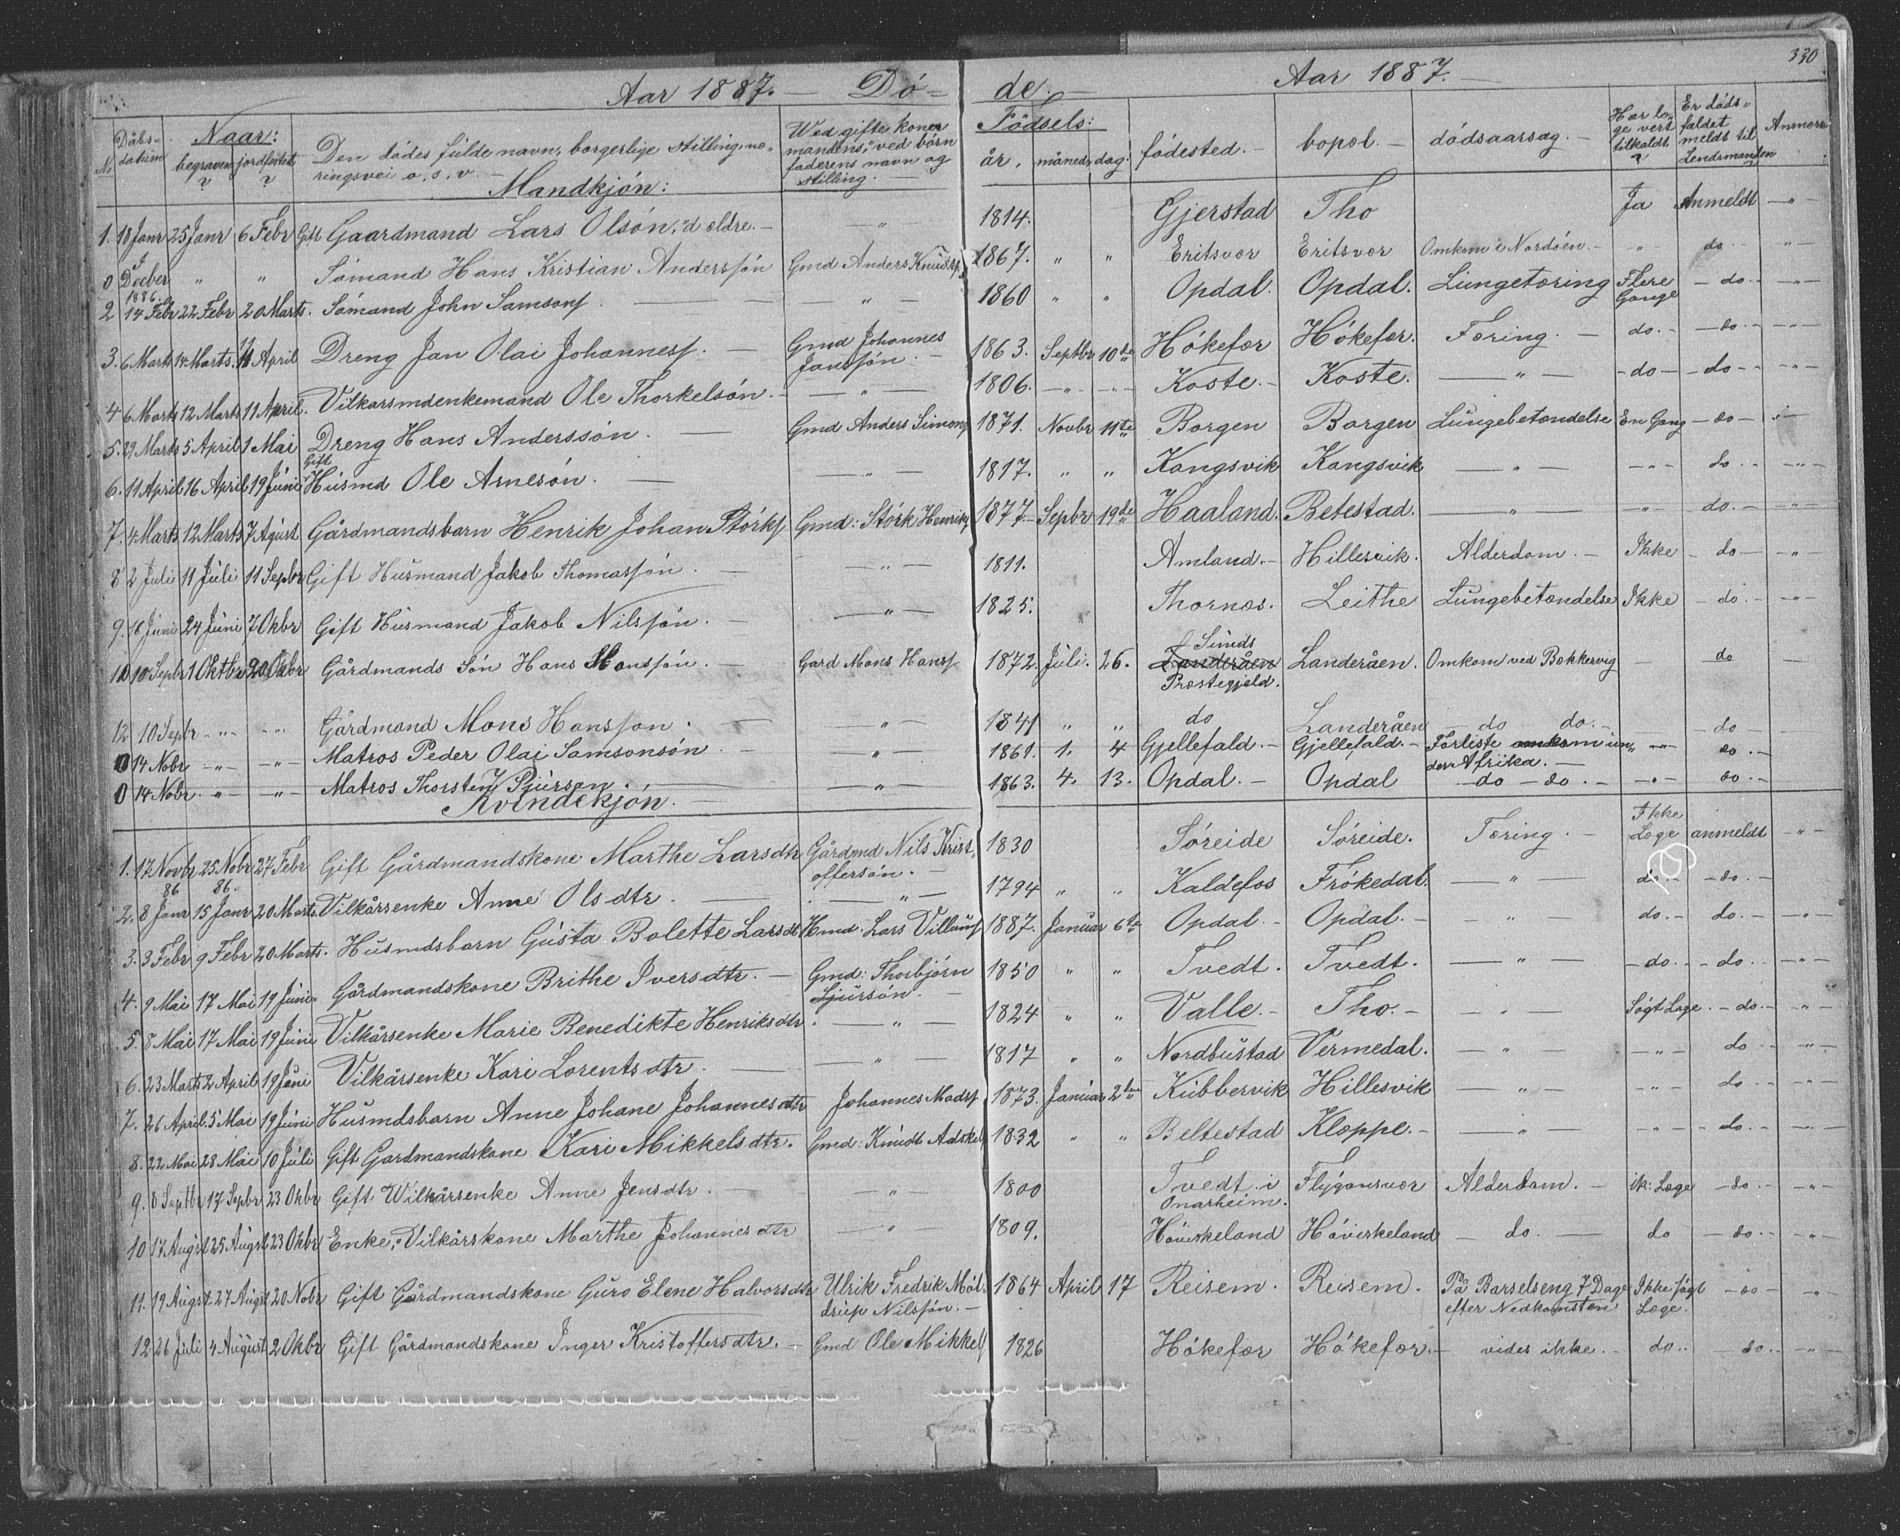 330
Aar 1887. — Dö = de. — Aar 1887. —
No Dåbs-datum. Naar: begraven? jordfæstet? Den dödes fulde navn, borgerlige stilling, næringsvei o. s. v. — Ved gifte koner mandens, ved börn faderens navn og stilling. — Födsels: år. måned, dag. födested. — bopæl. — dödsaarsag. — Har læge vert tilkaldt? Er döds-faldet meldt til Lendsmanden Anmærk
Mandkjön:
1. 18 Janr 25 Janr 6 Febr Gift Gaardmand Lars Olsön, "d ældre. — — " — 1814. Gjerstad Tho Ja Anmeldt — " —
0 Decber 1886 " " Sömand Hans Kristian Anderssön Gmd Anders Knuds 1867. " " Eritsvor Eritsvor Omkom i Nordsöen. — - " - do - " -
2 14 Febr 22 Febr 20 Marts. Sömand John Samsons. — " — 1860 " " Opdal. Opdal. Lungetæring Flere Gange — do. - - " -
3. 6 Marts 14 Marts. 11 April Dreng Jan Olai Johannes. — Gmd Johannes Janssön. — 1863. Septbr 10de Hökefær Hökefær. Tæring. — do. - - do - - " -
4 6 Marts 12 Marts 11 April. Vilkarsmdenkemand Ole Thorkelsön. — — " — 1806. - " - - - Koste. - Koste. — " — - do - - do - - " -
5. 29 Marts 5 April 1 Mai Dreng Hans Anderssön. — Gmd Anders Simons 1871. Novbr 11te Borgen Borgen Lungebetændelse En Gang - do - - " -
6. 11 April 16 April 19 Juni Gift Husmd Ole Arnesön. — — " — 1817. " " Kangsvik Kangsvik — " — - " - do - - " -
7. 4 Marts 12 Marts 7 Agust Gårdmandsbarn Henrik Johan Störks Gmd: Störk Henriks 1877. Sepbr 19de Haaland. Betestad. — " — " do. - - " -
8 2 Juli 11 Juli 11 Sepbr Gift Husmand Jakob Thomassön. — — " — 1811. Amland. - Hillesvik. Alderdom. — Ikke - do - - " -
9. 16 Juni 24 Juni 7 Okbr Gift Husmand Jakob Nilssön. — — " — 1825. Thornæs. Leithe Lungebetændelse Ikke - do. - - " -
10 10 Sepbr 1 Oktbr 20 Okbr Gårdmands Sön Hans Monssön. — Gard Mons Hans 1872. Juli. 26. Sunds Præstegjeld. Landeråen. Omkom ved Bekkervig - do -
12 10 Sepbr - " - - " - Gårdmand Mons Hansson. — — " — 1841 " " do Landeråen - do do. - - do
0 14 Nobr - " - - " - Matros Peder Olai Samsonsön — — " — 1861. 1. 4 Gjellefald. - Gjellefald. - Forliste under Afrika. — - " - do. -
0 14 Nobr. " - - " - Matros Thorsten Sjursen. — — " — 1863. 4. 13. Opdal. - Opdal — do - do. - - " - do. -
Kvindekjön. —
1. 17 Novbr 86 25 Nobr 86. 27 Febr Gift Gårdmandskone Marthe Larsdtr Gårdmd Nils Kristoffersön. — 1830 Söreide Söreide. Tæring. — Ikke Læge anmeldt - " -
2. 8 Janr 15 Janr 20 Marts. Vilkårsenke Anne Olsdtr. — — " — 1794 " " Kaldefos Frökedal. — " — do - - do. -
3. 3 Febr 9 Febr 20 Marts. Husmdsbarn Gusta Bolette Larsdtr Hmd. Lars Villums 1887. Januar 6te Opdal - Opdal. - - " - do. - - do. - - " -
4. 9 Mai 17 Mai 19 Juni Gårdmandskone Brithe Iversdtr. — Gmd: Thorbjörn Sjursön. — 1850 " " Tvedt. Tvedt. — " — - do. - - do. - - " -
5. 8 Mai 17 Mai 19 Juni Vilkårsenke Marie Benedikte Henriksdtr. — " — 1824 " " Valle. - Tho. - - " - Sögt Læge. - do. - - " -
6. 23 Marts 2 April 19 Juni Vilkårsenke Kari Lorentsdtr. — — " — 1817 " " Nordbustad Vermedal. — " — - " - do - - " -
7. 26 April 5 Mai 19 Juni Husmdsbarn Anne Johane Johannesdtr Johannes Mads 1873. Januar 2den Kubbervik Hillesvik — " — - " - do. - - " -
8. 22 Mai 28 Mai 10 Juli Gift Gardmandskone Kari Mikkelsdtr. Gmd: Knudt Adskel 1832 " " Beltestad Kloppe. - — " — - " - do. - - " -
9. 8 Septbr 17 Sepbr 23 Okbr Gift Wilkårsenke Anne Jensdtr. — — " — 1800 Tvedt i Onarheim. Flygansvær Alderdom. — ik: Læge - do - - " -
10 17 Augst 25 Augst 23 Okbr Enke, Vilkårskone Marthe Johannesdtr — " — 1809. Håvirkeland Håvirkeland — do. — do - do - - " -
11. 19 Augst 27 Augst 20 Nobr Gift Gårdmandskone Guro Elene Halvorsdtr Ulrik Fredrik Möldrup Nilssön. — 1864 April 17 Reisem. Reisem. På Barselseng 7 Dage efter Nedkomsten Ikke sögt Læge. - do - - " -
12 26 Juli 4 August 2 Okbr Gift Gårdmandskone Inger Kristoffersdtr. — Gmd Ole Mikkels 1826 Hökefær Hökefær. - vides ikke. - do. - - do. - - " -